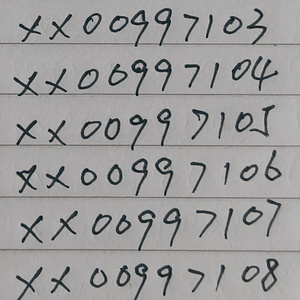 xx00997103
xx00997104
xx00997105
xx00997106
xx00997107
xx00997108